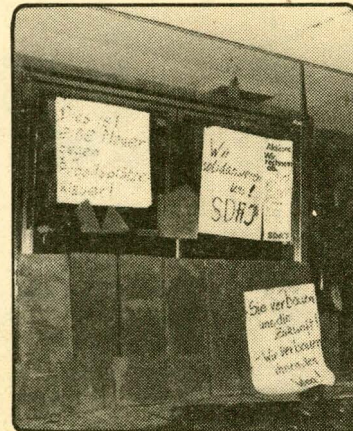 Dies ist
eine Mauer
gegen
Arbeitsplätze-
klauer!
Wir
solidarisieren
uns!
SDAJ
Aktionen:
Wir
rechnen
ab.
SDAJ
Sie verbauen
uns die
Zukunft!
- Wir verbauen
ihnen den